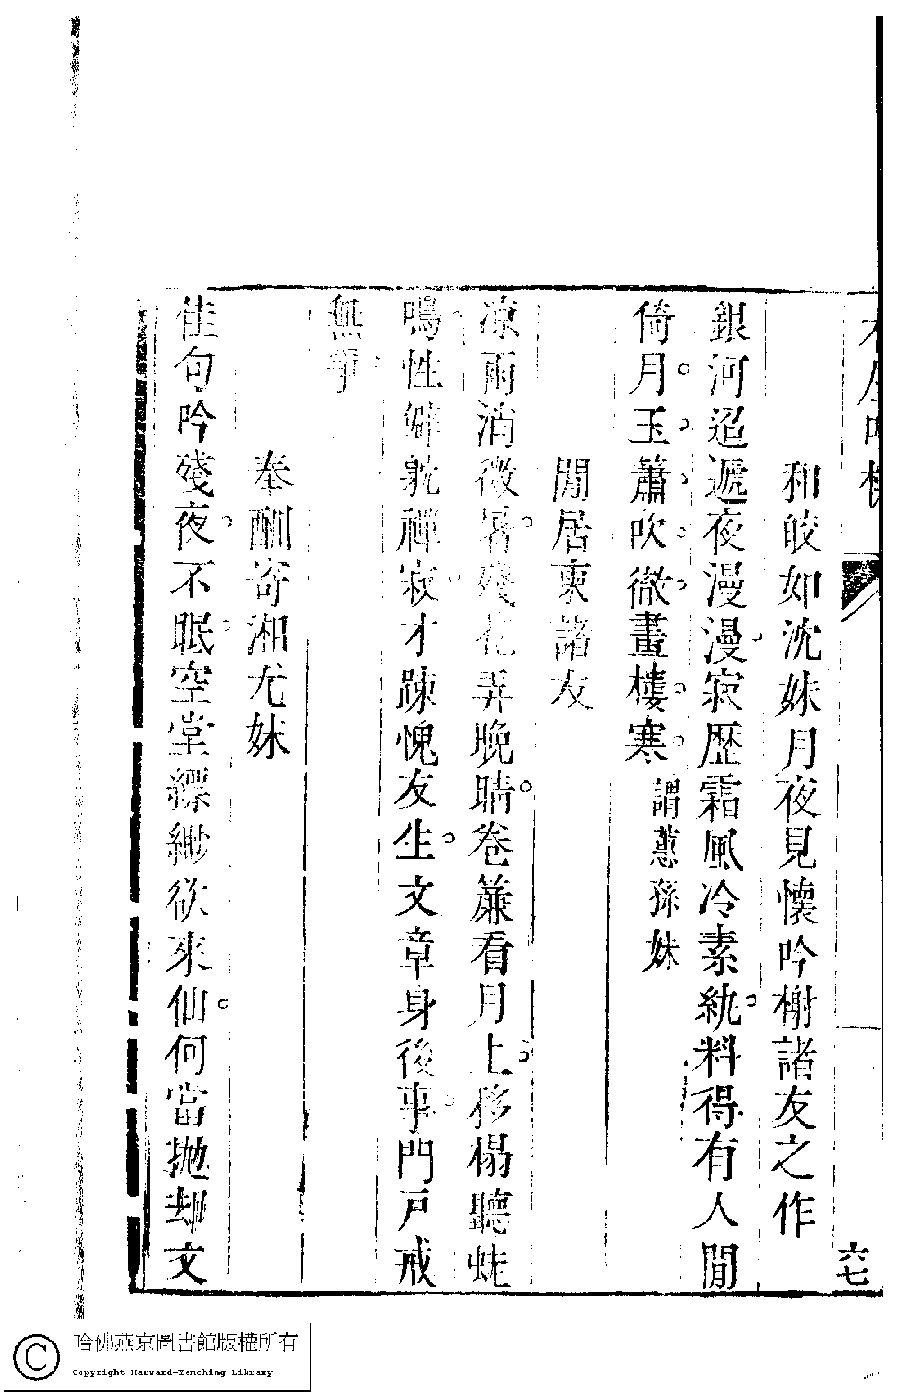 和皎如沈妹月夜見懷吟榭諸友之作
銀河迢遞夜漫漫寂歷霜風冷素紈料得有人閒
倚月玉簫吹微畫樓寒謂蕙孫妹
閒居柬諸友
凉雨消微暑殘花弄晚晴卷簾看月上移榻聽蛙
鳴性僻躭禪寂才踈愧友生文章身後事門戸戒
無爭
奉酬寄湘尤妹
佳句吟殘夜不眠空堂縹緲欲來仙何當拋却文
六七
哈佛燕京圖書館版權所有
Copyright Harvard-Yenching Library